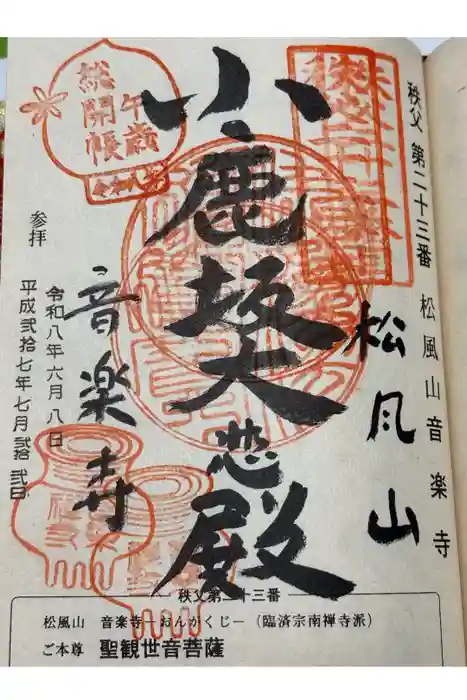 秩父 第二十三番 松風山 音楽寺
松風山
小鹿坂大悲殿
音楽寺
総開帳
午歳
令和八年
参拝
令和八年六月八日
平成弐拾七年七月弐拾弐日
秩父第二十三番
松風山 音楽寺―おんがくじ―(臨済宗南禅寺派)
ご本尊 聖観世音菩薩